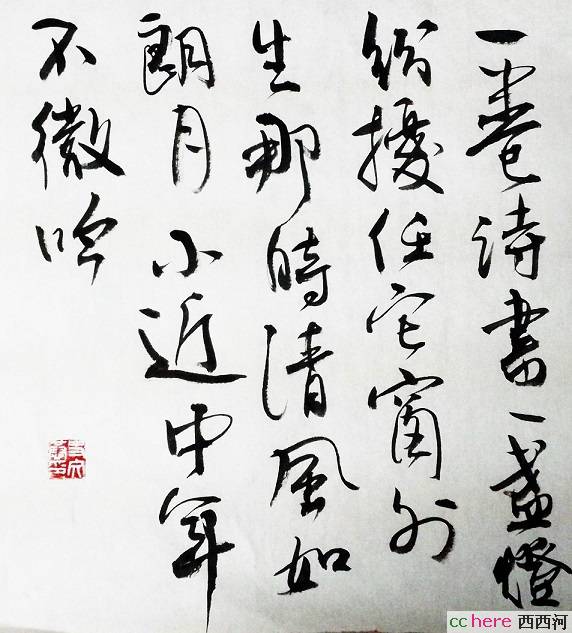 一卷诗書一盏燈
紛擾任它窗外
生那時清風如
朗月不近中年
不微吟
cchere 西西河